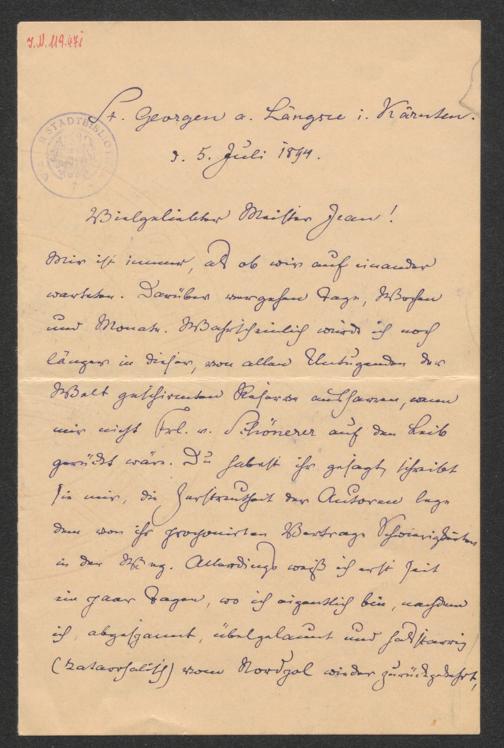 I.N. 119.471
St. Georgen a. Längsee i. Kärnten.
d. 5. Juli 1894.
Vielgeliebter Meister Jean!
Mir ist immer, als ob wir auf einander
warteten. Darüber vergehen Tage, Wochen
und Monate. Wahrscheinlich würde ich noch
länger in dieser, von allen Untugenden der
Welt geschirmten Reserve ausharren, wenn
mir nicht Frl. v. Schönerer auf den Leib
gerückt wäre. Du habest ihr gesagt, schreibt
sie mir, die Zerstreutheit der Autoren lege
dem von ihr proponirten Vertrage Schwierigkeiten
in den Weg. Allerdings weiß ich erst seit
ein paar Tagen, wo ich eigentlich bin, nachdem
ich, abgespannt, übelgelaunt und halsstarrig
(katarrhalisch) vom Nordpol wieder zurückgekehrt,